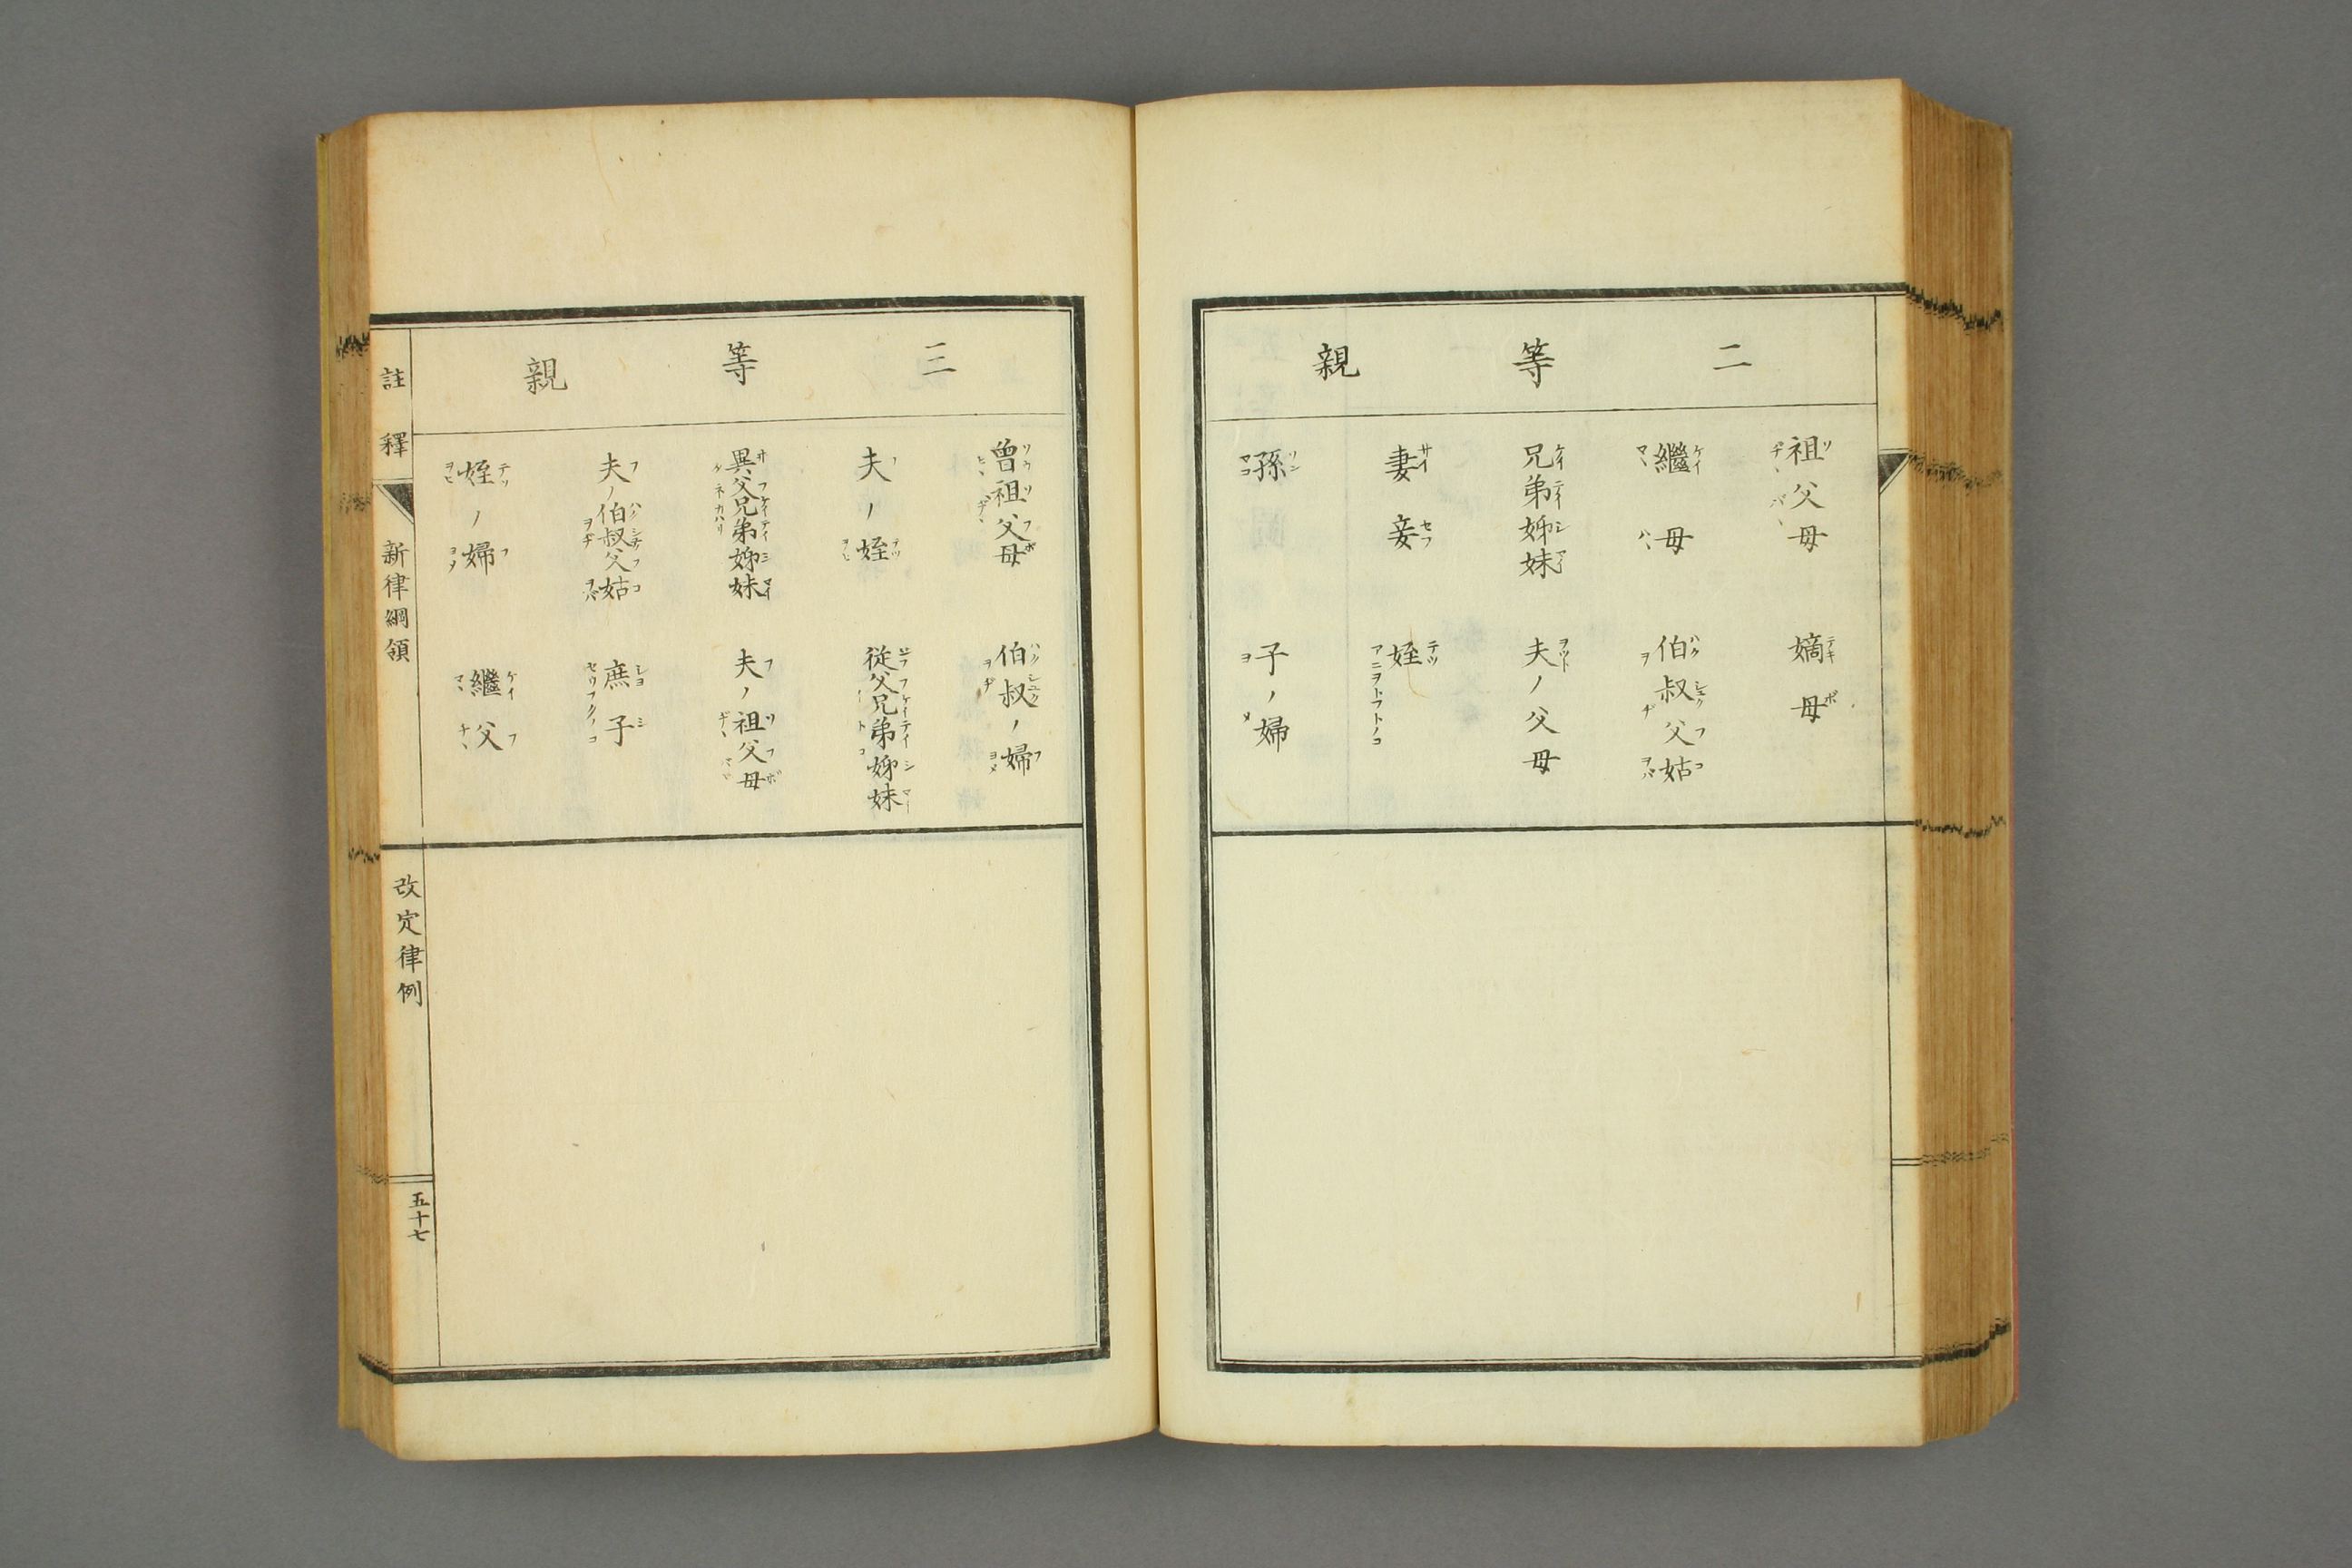 二等親
祖父母
嫡母
繼母
伯叔父姑
兄弟姊妹
夫ノ父母
妻妾
姪
孫
子ノ婦
三等親
曾祖父母
伯叔ノ婦
夫ノ姪
從父兄弟姊妹
異父兄弟姊妹
夫ノ祖父母
夫ノ伯叔父姑
庶子
姪ノ婦
繼父
註釋
新律綱領
改定律例
五十七